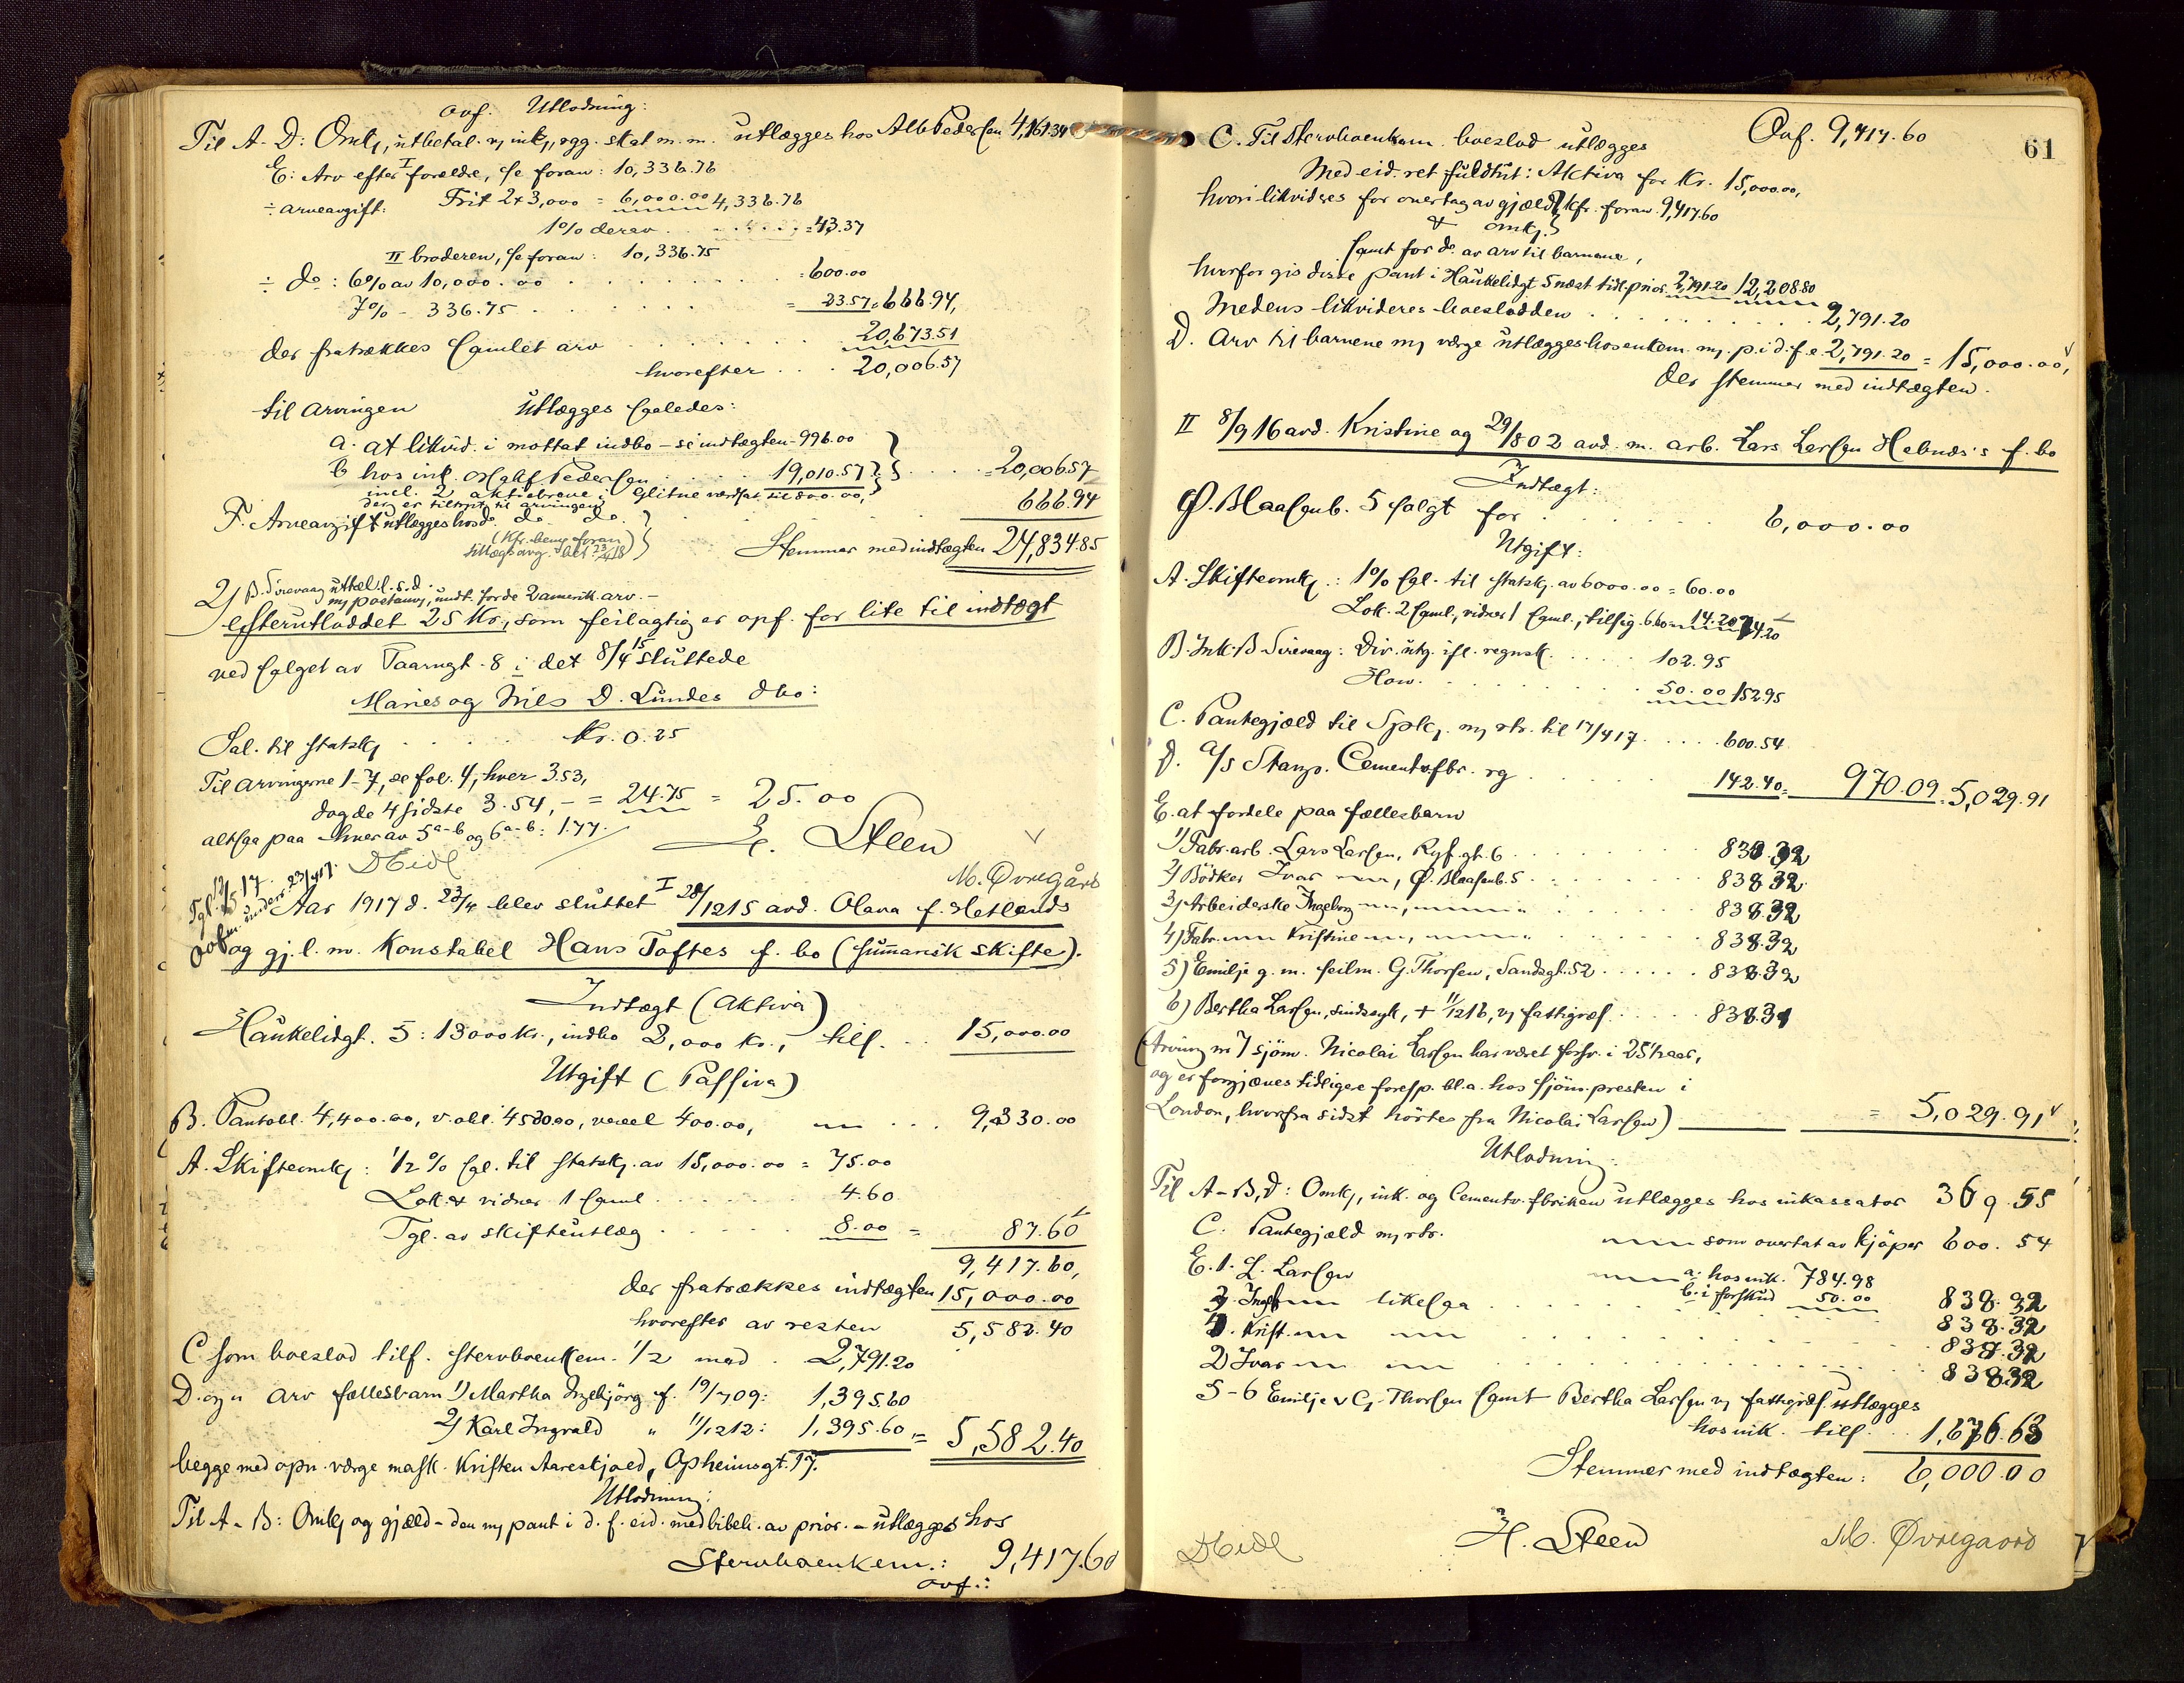 ovf. Utlodning:
Til A-D: Omk., utbetal. v. ink., egg. skat m.m. utlægges hos Alb Pedersen 4,161.34
E: Arv efter I forældre, se foran: 10,336.76
÷ arveavgift: Frit 2 x 3,000 = 6,000.00 4,336.76
1% derav . . . = 43.37
II broderen, se foran: 10,336.75
÷ do: 6% av 10,000.00 . . . = 600.00
7% - 336.75 . . . = 23.57 = 666.94,
20,673.51
der fratrækkes samlet arv
hvorefter . . . 20,006.57
til arvingen utlægges saaledes:
a. at likvid. i mottat indbo - se indtægten - 996.00
b hos ink. Pedersen . . . 19,010.57 = 20,006.57
incl. 2 aktiebreve i Glitne værdsat til 800.00,
F. Arveavgift utlægges hos do. do. do. 666.94
(Kfr. bem. foran)
Stemmer med indtægten 24,834.85
2) B. Sirevaag
efterutloddet 25 Kr., som feilagtig er opf. for lite til indtægt
ved salget av Taarngt. 8 i det 8/4 15 sluttede
Maries og Nils D. Lundes dbo:
Sal. til statsk. . . . Kr. 0.25
Til arvingerne 1-7, se fol. 4, hver 3.53,
dog de 4 sidste 3.54, - = 24.75 = 25.00
altsaa paa hver av 5 a-b og 6 a-b: 1.77.
H. Steen
DEidl
M. Øvregård
Aar 1917 d. 23/4 blev sluttet I 28/12 15 avd. Olava f. Hetlands
og gj.l. m. Konstabel Hans Toftes f. bo (summarisk skifte).
Indtægt (Aktiva)
Haukelidgt. 5: 13000 kr., indbo 2,000 kr., tils. . . 15,000.00
Utgift (Passiva)
B. Pantobl. 4,400.00, v. obl. 4530.00, vexel 400.00, . . . 9,330.00
A. Skifteomk.: 1/2% sal. til statsk. av 15,000.00 = 75.00
Lok. & vidner 1 saml . . . 4.60
Tgl. av skifteutlæg . . . 8.00 = 87.60
9,417.60,
der fratrækkes indtægten 15,000.00
hvorefter av resten 5,582.40
C som boeslod tilf. stervboenkem. 1/2 med . 2,791.20
D. og n arv fællesbarn 1) Martha Ingebjörg f. 19/7 09: 1,395.60
2) Karl Ingvald " 11/12 12: 1,395.60 = 5,582.40
begge med opn. værge mask. Kristen Aarestjaed, Opheimsgt. 17.
Utlodning:
Til A-B: Omk. og gjæld - den m. pant i d. f. eid. med bibeh. av prior. - utlægges hos
Stervboenkem.: 9,417.60
ovf.:
61
Ovf. 9,417.60
C. Til Stervboenkem. boeslod utlægges
Med eid. ret fuldtut: Aktiva for Kr. 15,000.00,
hvori likvideres for overtag. av gjæld kfr. foran 9,417.60
& omk.
samt for do av arv til barnene,
hvorfor gis disse pant i Haukelidgt 5 næst tidl. prior. 2,791.20 12,208.80
Medens likvideres boeslodden . . . 2,791.20
D. Arv til barnene m. værge utlægges hos enkem. m. p. i d. f. e. 2,791.20 = 15,000.00,
der stemmer med indtægten.
II 8/9 16 avd. Kristine og 29/8 02 avd. m. arb. Lars Larsen Hebnæs's f. bo
Indtægt:
Ø. Blaasenb. 5 solgt for . . . 6,000.00
Utgift:
A. Skifteomk.: 1% sal. til statsk. av 6000.00 = 60.00
Lok. 2 saml., vidner 1 saml., tilsig. 6.60 14.20 74.20
B. Ink. B. Sirevaag: Div. utg. ifl. regnsk. . . . 102.95
Hon. . . . 50.00 152.95
C. Pantegjæld til Spbk. m. rtr. til 17/4 17 . . . 600.54
D. A/S Stavgr. Cementvfbr. rg . . . 142.40 = 970.09 = 5,029.91
E. at fordele paa fællesbarn
1) Fabr. arb. Lars Larsen, Ryf. gt. 6 . . . 838.32
2) Bödker Ivar —, Ø. Blaasenb. 5 . . . 838.32
3) Arbeiderske Ingeborg —, — " . . . 838.32
4) Fabr. — Kristine —, — " . . . 838.32
5) Emilje g. m. seilm. G. Thorsen, Sandsgt. 52 . . . 838.32
6) Bertha Larsen, sindssyk, + 11/12 16, v. fattigvæs. . . . 838.31
(Arving nr 7 sjöm. Nicolai Larsen har været forsv. i 25 aar,
og er forgjæves tidligere foresp. bl.a. hos sjöm.presten i
London, hvorfra sidst hörtes fra Nicolai Larsen) = 5,029.91
Utlodning:
Til A-B, D: Omk., ink. og Cementv. fbriken utlægges hos inkassator 369.55
C. Pantegjæld m. rtr. — som overtat av kjöper 600.54
E. 1. L. Larsen — a. hos ink. 784.98
b. i forskud 50.00 838.32
3. Ingeb — likesaa . . . 838.32
4. Krist. — — . . . 838.32
2) Ivar — — . . . 838.32
5-6 Emilje v. G. Thorsen samt Bertha Larsen v. fattigvæs. utlægges
hos ink. tils. . . 1,676.63
Stemmer med indtægten: 6,000.00
DEidl
H. Steen
M. Øvregaard